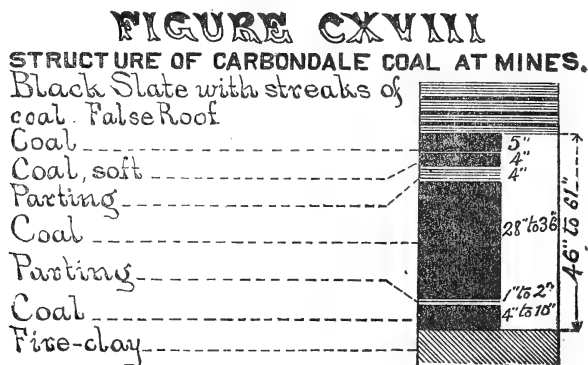 FIGURE CXVIII
STRUCTURE OF CARBONDALE COAL AT MINES.
Black Slate with streaks of
coal. False Roof
Coal 5"
Coal, soft 4"
Parting 4"
Coal 28" to 36"
Parting 1" to 2"
Coal 4" to 10"
Fire-clay
46" to 61"